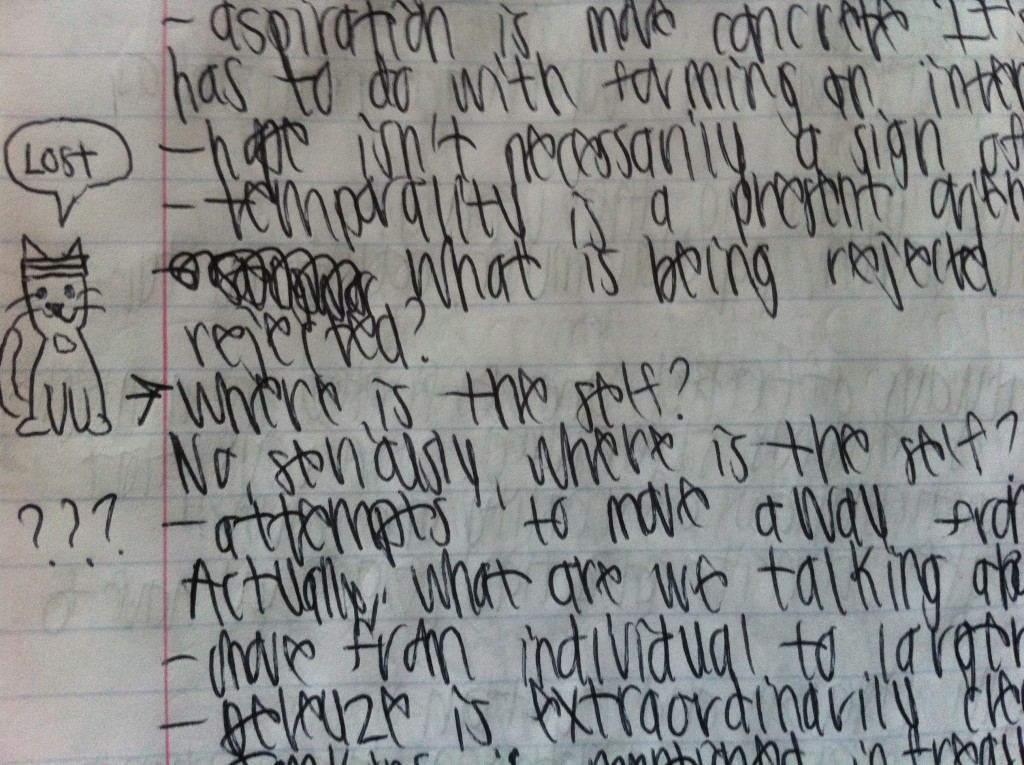 - aspiration is more concrete It's
has to do with forming an inter
LOST
- hope isn't necessarily a sign of
- temporality is a present agen
What is being rejected
rejected?
→ Where is the self?
No, seriously, where is the self?
???
- attempts to move away from
Actually, what are we talking abo
- move from individual to larger
- Deleuze is extraordinarily cre
is mentioned in